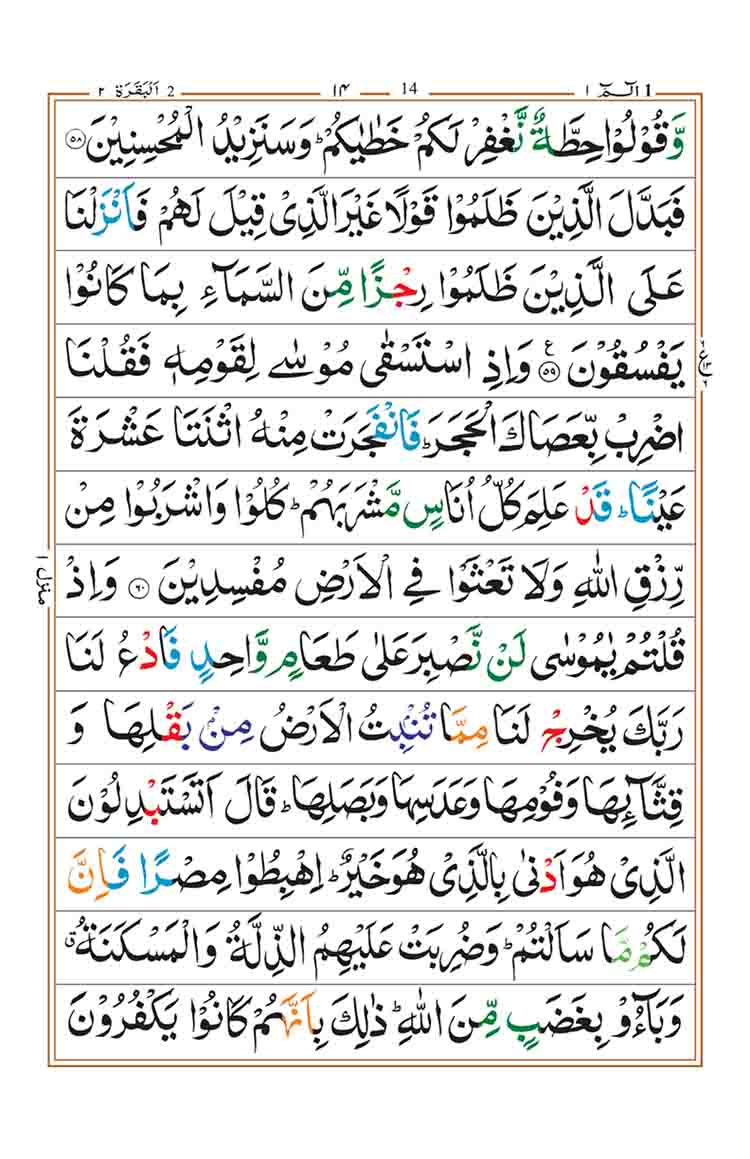 1 الٓـمّٓ ۱ 14 ۱۴ 2 اَلْبَقَرَة ۲
وَّقُوْلُوْا حِطَّةٌ نَّغْفِرْ لَكُمْ خَطٰیٰكُمْ ؕ وَسَنَزِیْدُ الْمُحْسِنِیْنَ ﴿۵۸﴾
فَبَدَّلَ الَّذِیْنَ ظَلَمُوْا قَوْلًا غَیْرَ الَّذِیْ قِیْلَ لَهُمْ فَاَنْزَلْنَا
عَلَی الَّذِیْنَ ظَلَمُوْا رِجْزًا مِّنَ السَّمَآءِ بِمَا كَانُوْا
یَفْسُقُوْنَ ﴿۵۹﴾ ع وَاِذِ اسْتَسْقٰی مُوْسٰی لِقَوْمِهٖ فَقُلْنَا
اضْرِبْ بِّعَصَاكَ الْحَجَرَ ؕ فَانْفَجَرَتْ مِنْهُ اثْنَتَا عَشْرَةَ
عَیْنًا ؕ قَدْ عَلِمَ كُلُّ اُنَاسٍ مَّشْرَبَهُمْ ؕ كُلُوْا وَاشْرَبُوْا مِنْ
رِّزْقِ اللّٰهِ وَلَا تَعْثَوْا فِی الْاَرْضِ مُفْسِدِیْنَ ﴿۶۰﴾ وَاِذْ
منزل ۱
قُلْتُمْ یٰمُوْسٰی لَنْ نَّصْبِرَ عَلٰی طَعَامٍ وَّاحِدٍ فَادْعُ لَنَا
رَبَّكَ یُخْرِجْ لَنَا مِمَّا تُنْۢبِتُ الْاَرْضُ مِنْۢ بَقْلِهَا وَ
قِثَّآىِٕهَا وَفُوْمِهَا وَعَدَسِهَا وَبَصَلِهَا ؕ قَالَ اَتَسْتَبْدِلُوْنَ
الَّذِیْ هُوَ اَدْنٰی بِالَّذِیْ هُوَ خَیْرٌ ؕ اِهْبِطُوْا مِصْرًا فَاِنَّ
لَكُمْ مَّا سَاَلْتُمْ ؕ وَضُرِبَتْ عَلَیْهِمُ الذِّلَّةُ وَالْمَسْكَنَةُ ۗ
وَبَآءُوْ بِغَضَبٍ مِّنَ اللّٰهِ ؕ ذٰلِكَ بِاَنَّهُمْ كَانُوْا یَكْفُرُوْنَ